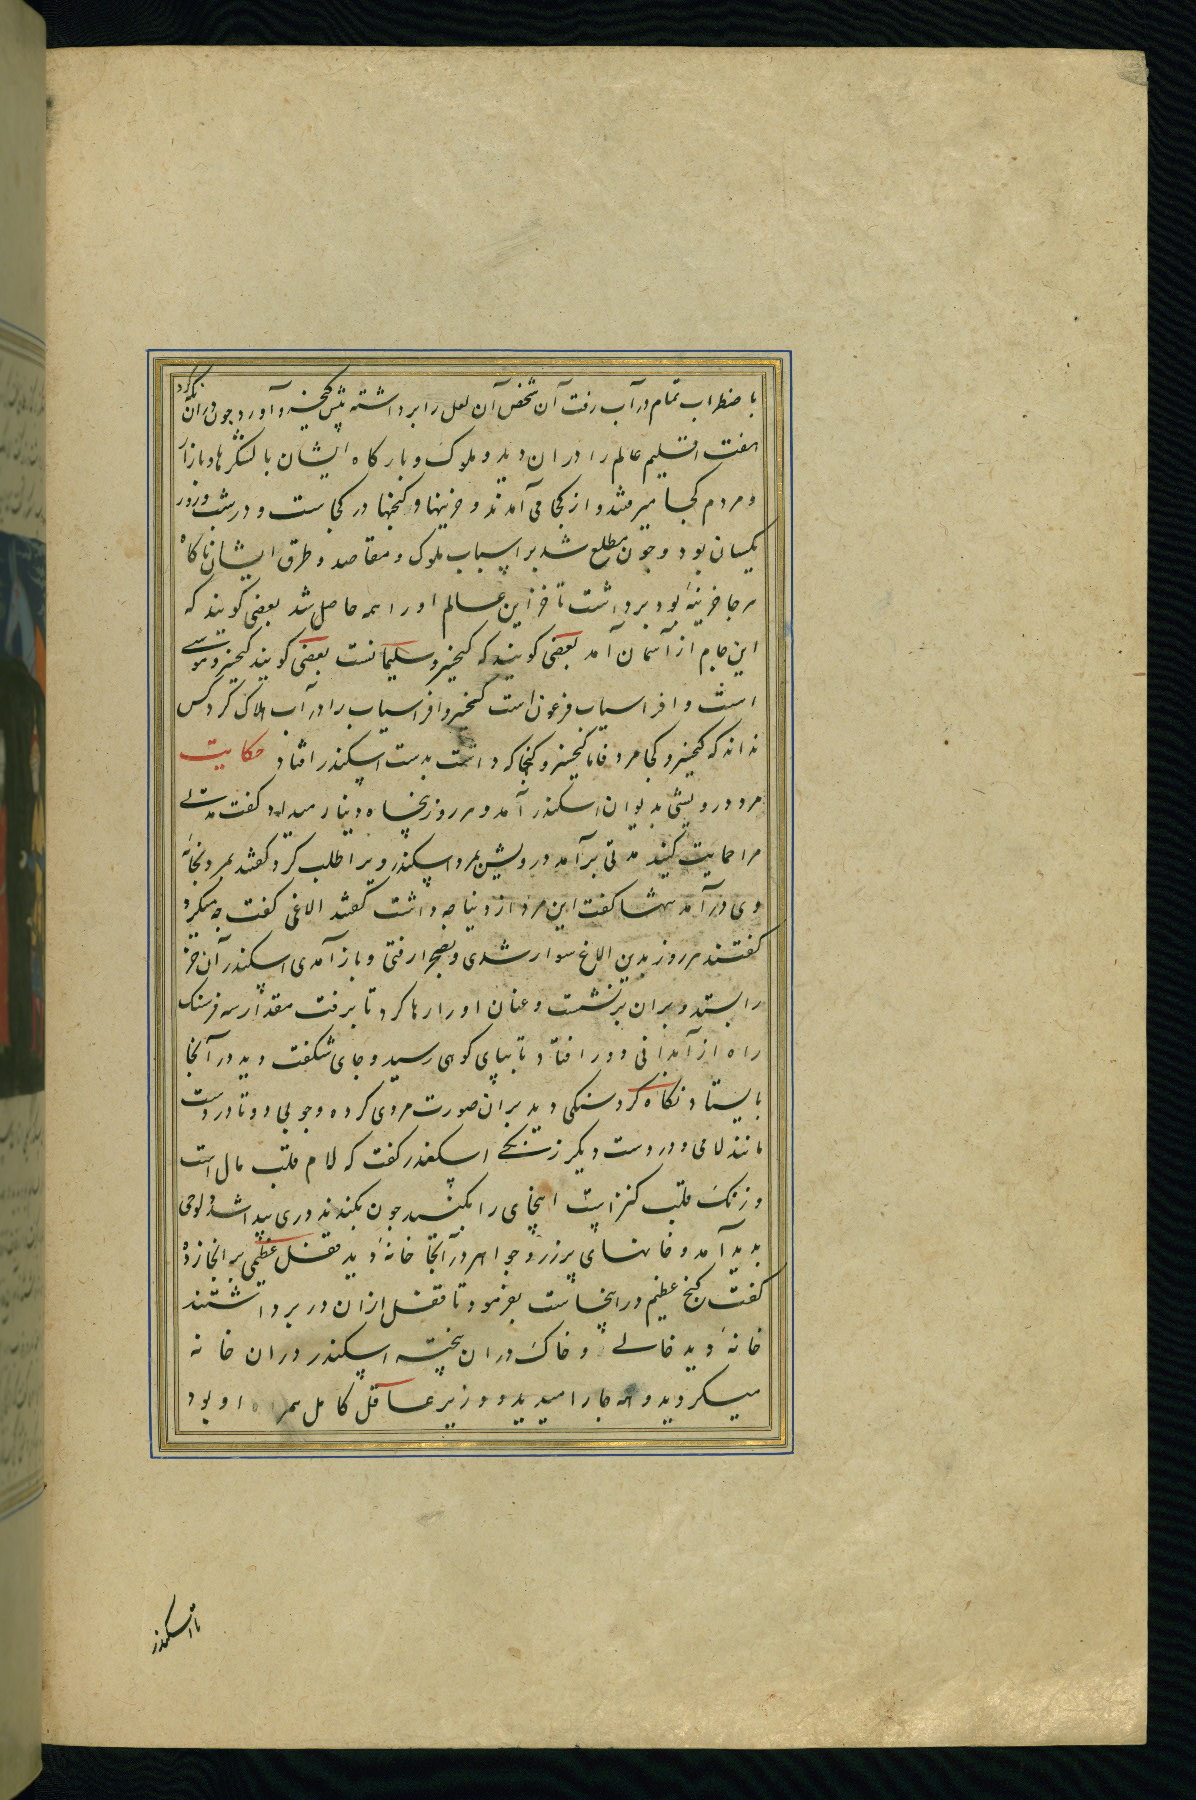 باضطراب تمام در آب رفت آن شخص آن لعل را برداشته پیش کیخسرو آورد چون در آن نگه کرد
هفت اقلیم عالم را در ان دید و ملوک و بارکاه ایشان با لشکرها و بازار
و مردم کجا میرفتند و از کجا می آمدند و خزینها و کنجها در کجاست و در شب و روز
یکسان بود و چون مطلع شد بر اسباب ملوک و مقاصد و طرق ایشان تا کاه
هر جا خزینهٔ بود برداشت تا خزاین عالم او را همه حاصل شد بعضی کویند که
این جام از آسمان آمد بعضی کویند که کیخسرو سلیمانست بعضی کویند کیخسرو موسی
است و افراسیاب فرعون است کیخسرو افراسیاب را در آب هلاک کرد کس
نداند که کیخسرو کجا مرد فاما کیخسرو کنجها که داشت بدست اسکندر افتاد حکایت
مرد درویشی بدیوان اسکندر آمد و هر روز پنجاه دینار میداد و کفت مدتی
مرا حمایت کنید مدتی برآمد درویش بمرد اسکندر ویرا طلب کرد کفتند بمرد بخانهٔ
وی در آمد کفت این مرد از دنیا چه داشت کفتند الاغی کفت چه میکرد
کفتند هر روز بدین الاغ سوار شدی و بصحرا رفتی و باز آمدی اسکندر آن خر
را بستد و بران برنشست و عنان او را رها کرد تا برفت مقدار سه فرسنک
راه از آبدانی دور افتاد تا بپای کوهی رسید و جای شکفت دید در آنجا
بایستاد نکاه کرد سنکی دید بران صورت مردی کرده و چوبی دوتا در دست
مانند لامی و در دست دیکر زنکی اسکندر کفت که لام قلب مال است
و زنک قلب کنز است اینجای را بکنید چون بکندند دری پیدا شد و لوحی
بدید آمد و خانهای پر زر و جواهر در آنجا خانهٔ دید قفل عظیمی بر انجا زده
کفت کنج عظیم در اینجاست بفرمود تا قفل از ان در برداشتند
خانهٔ دید خالی و خاک در ان پخته اسکندر در ان خانه
میکردید و همه جا را میدید و وزیر عاقل کامل همراه او بود
تا اسکندر